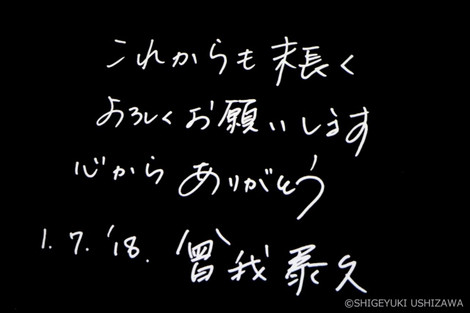 これからも末長く
よろしくお願いします
心からありがとう
1.7.'18. 曾我泰久
©SHIGEYUKI USHIZAWA